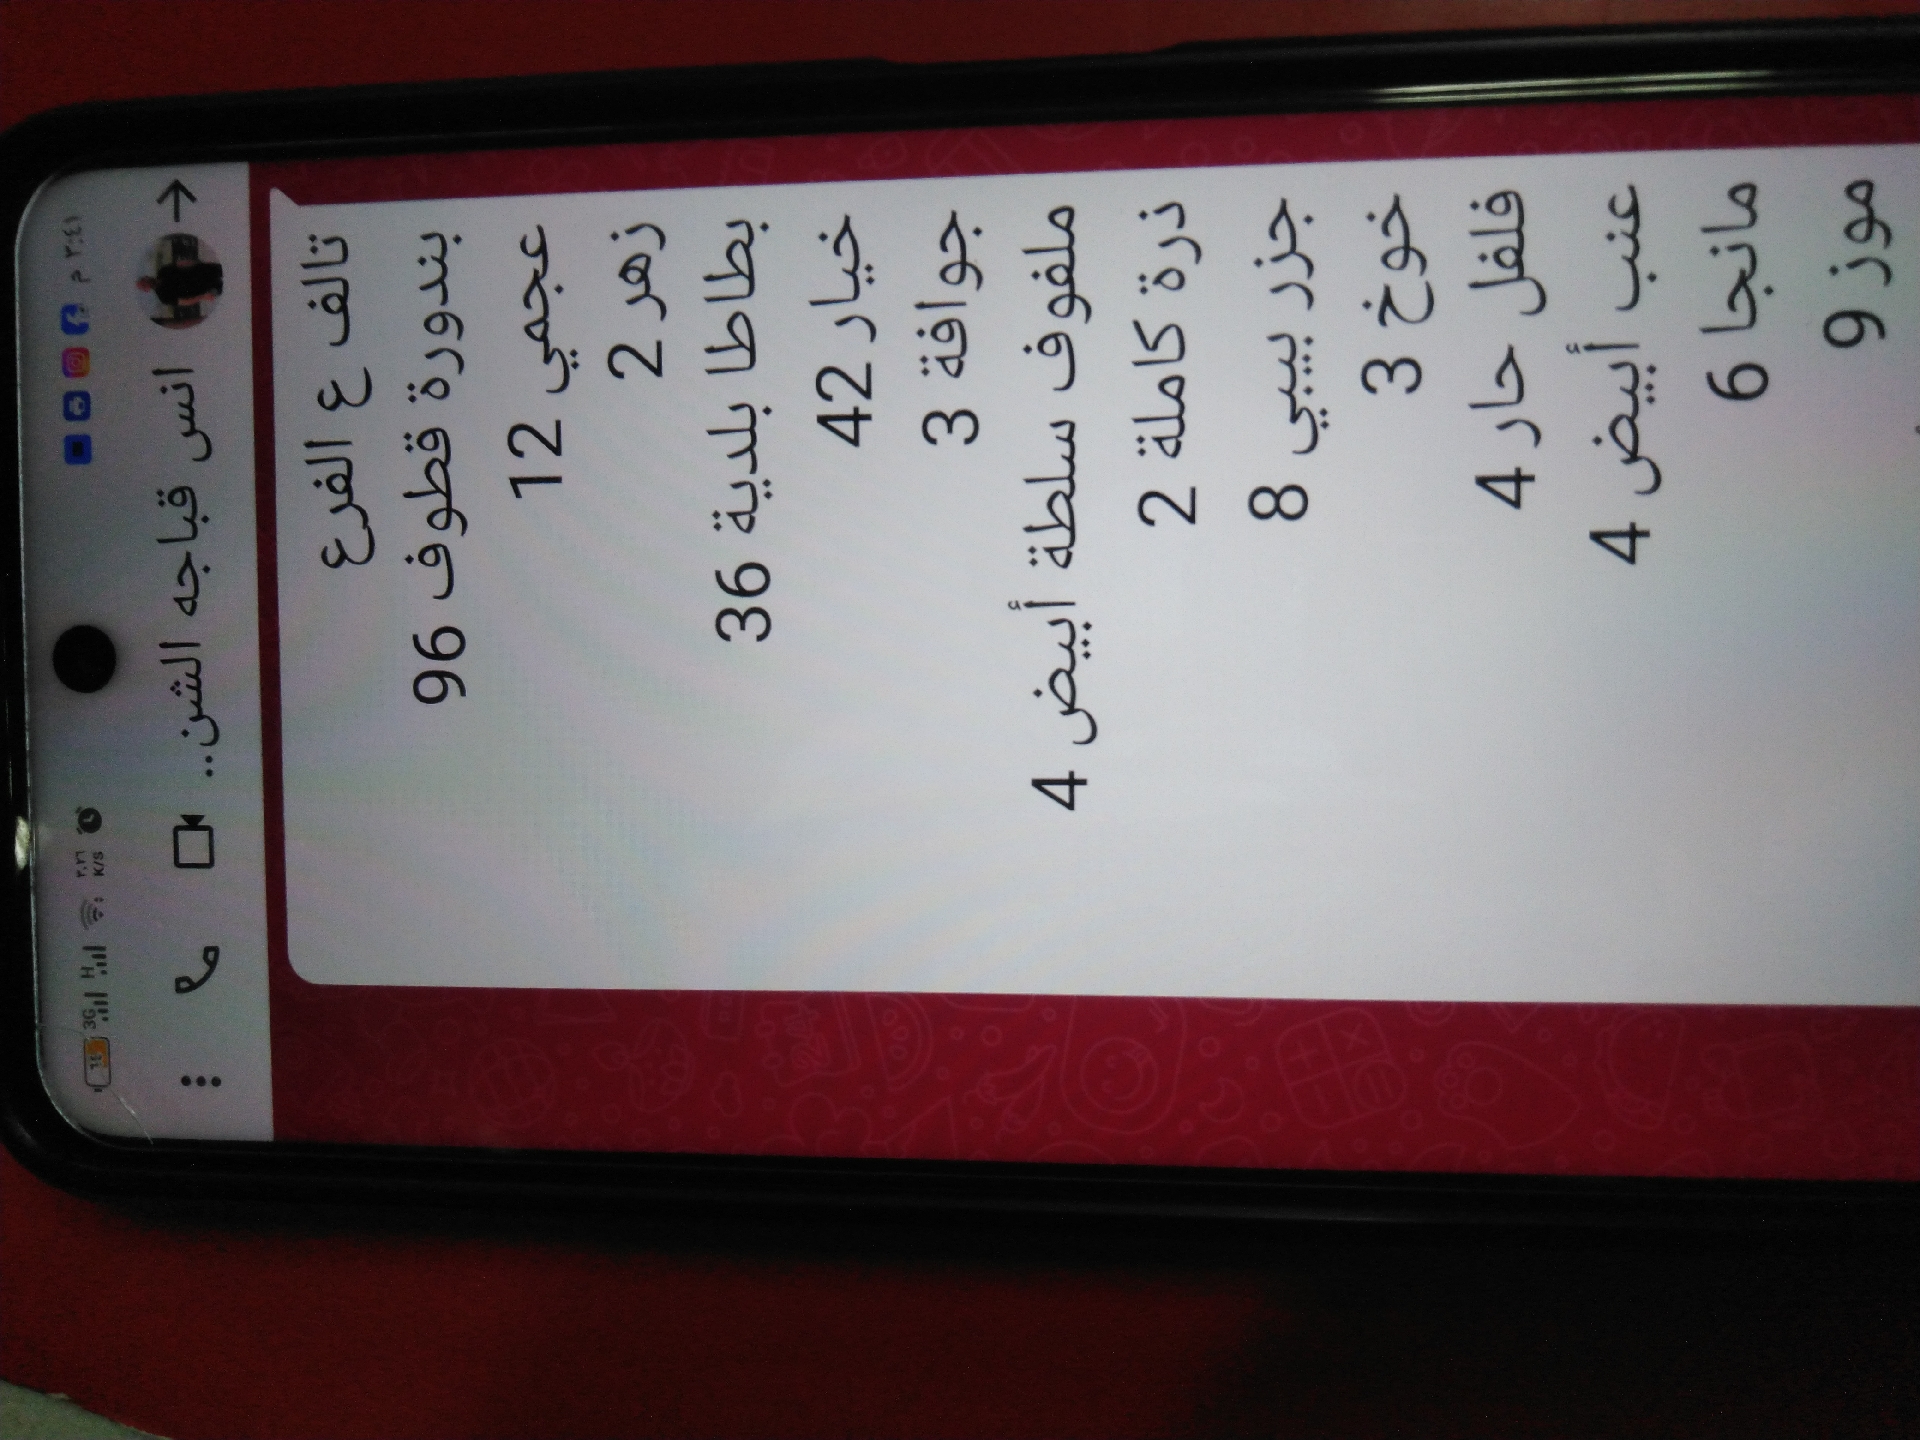 ٣:٤١ م
٢,٢٦ K/S
H
3G
انس قباجه الشن..
تالف ع الفرع
بندورة قطوف 96
عجمي 12
زهر 2
بطاطا بلدية 36
خيار 42
جوافة 3
ملفوف سلطة أبيض 4
ذرة كاملة 2
جزر بيبي 8
خوخ 3
فلفل حار 4
عنب أبيض 4
مانجا 6
موز 9